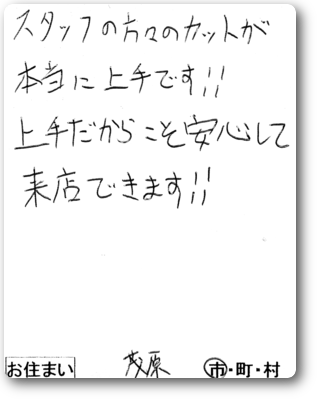 スタッフの方々のカットが
本当に上手です!!
上手だからこそ安心して
来店できます!!
お住まい 茂原 市・町・村